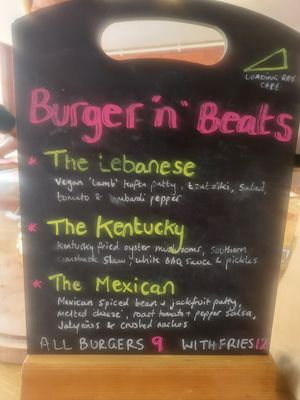 LOADING BAY
CAFE
Burger 'n' Beats
* The Lebanese
Vegan 'Lamb' Kofta patty, tzatziki, salad,
tomato & lombardi pepper
* The Kentucky
Kentucky fried oyster mushrooms, southern
comeback slaw, white BBQ sauce & pickles
* The Mexican
Mexican spiced bean & jackfruit patty,
melted cheeze, roast tomato & pepper salsa,
& crushed nachos
ALL BURGERS 9 WITH FRIES 12